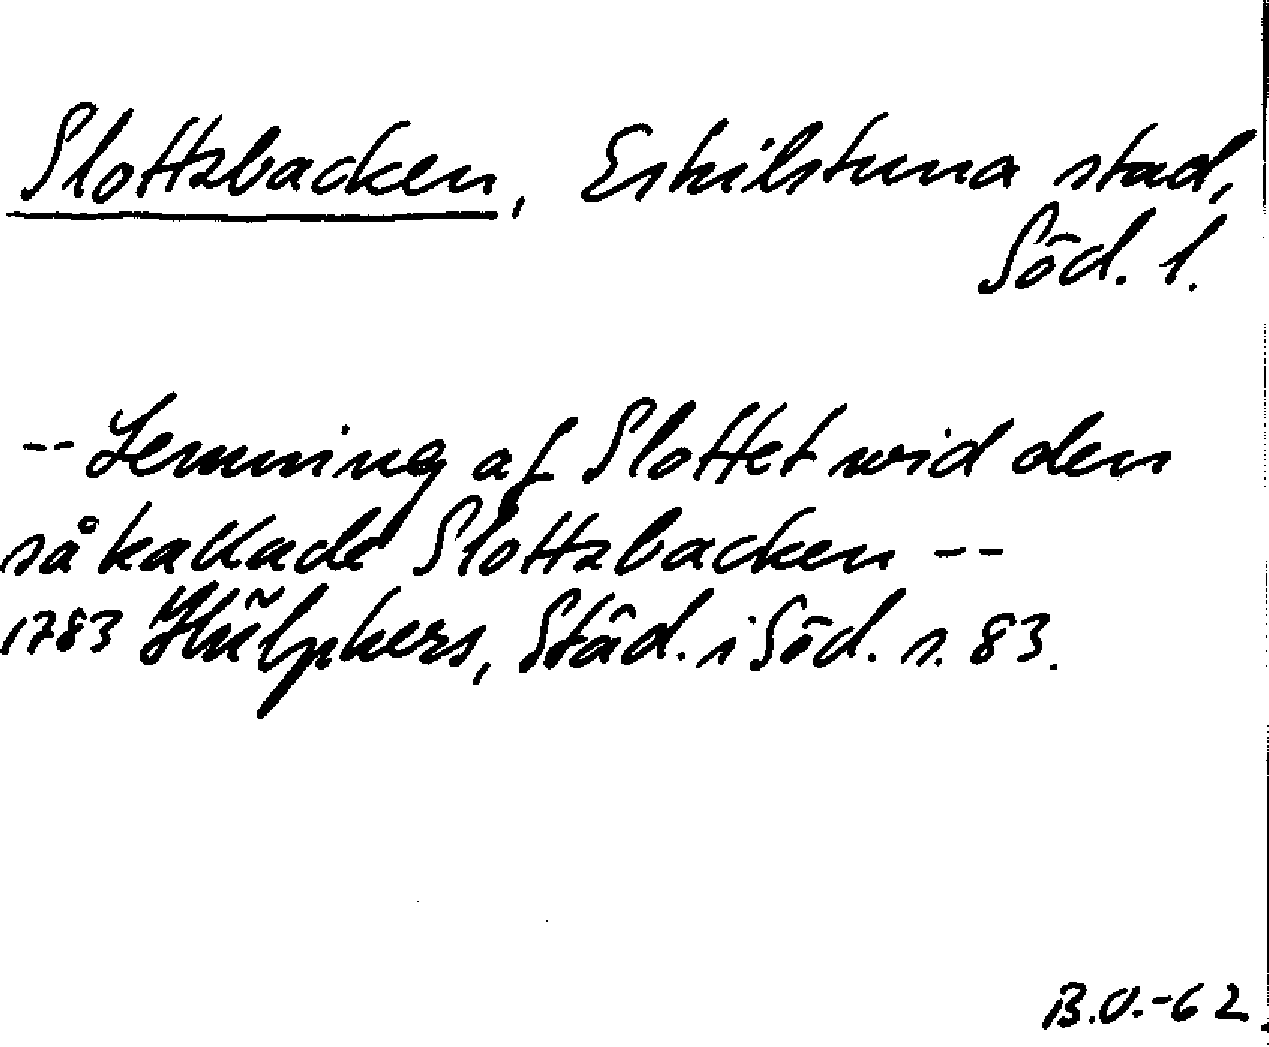 Slottzbacken, Eskilstuna stad,
Söd. l.
-- Lemning af Slottet wid den
så kallade Slottzbacken --
1783 Hülphers, Städ. i Söd. s. 83.
B.O.-62.